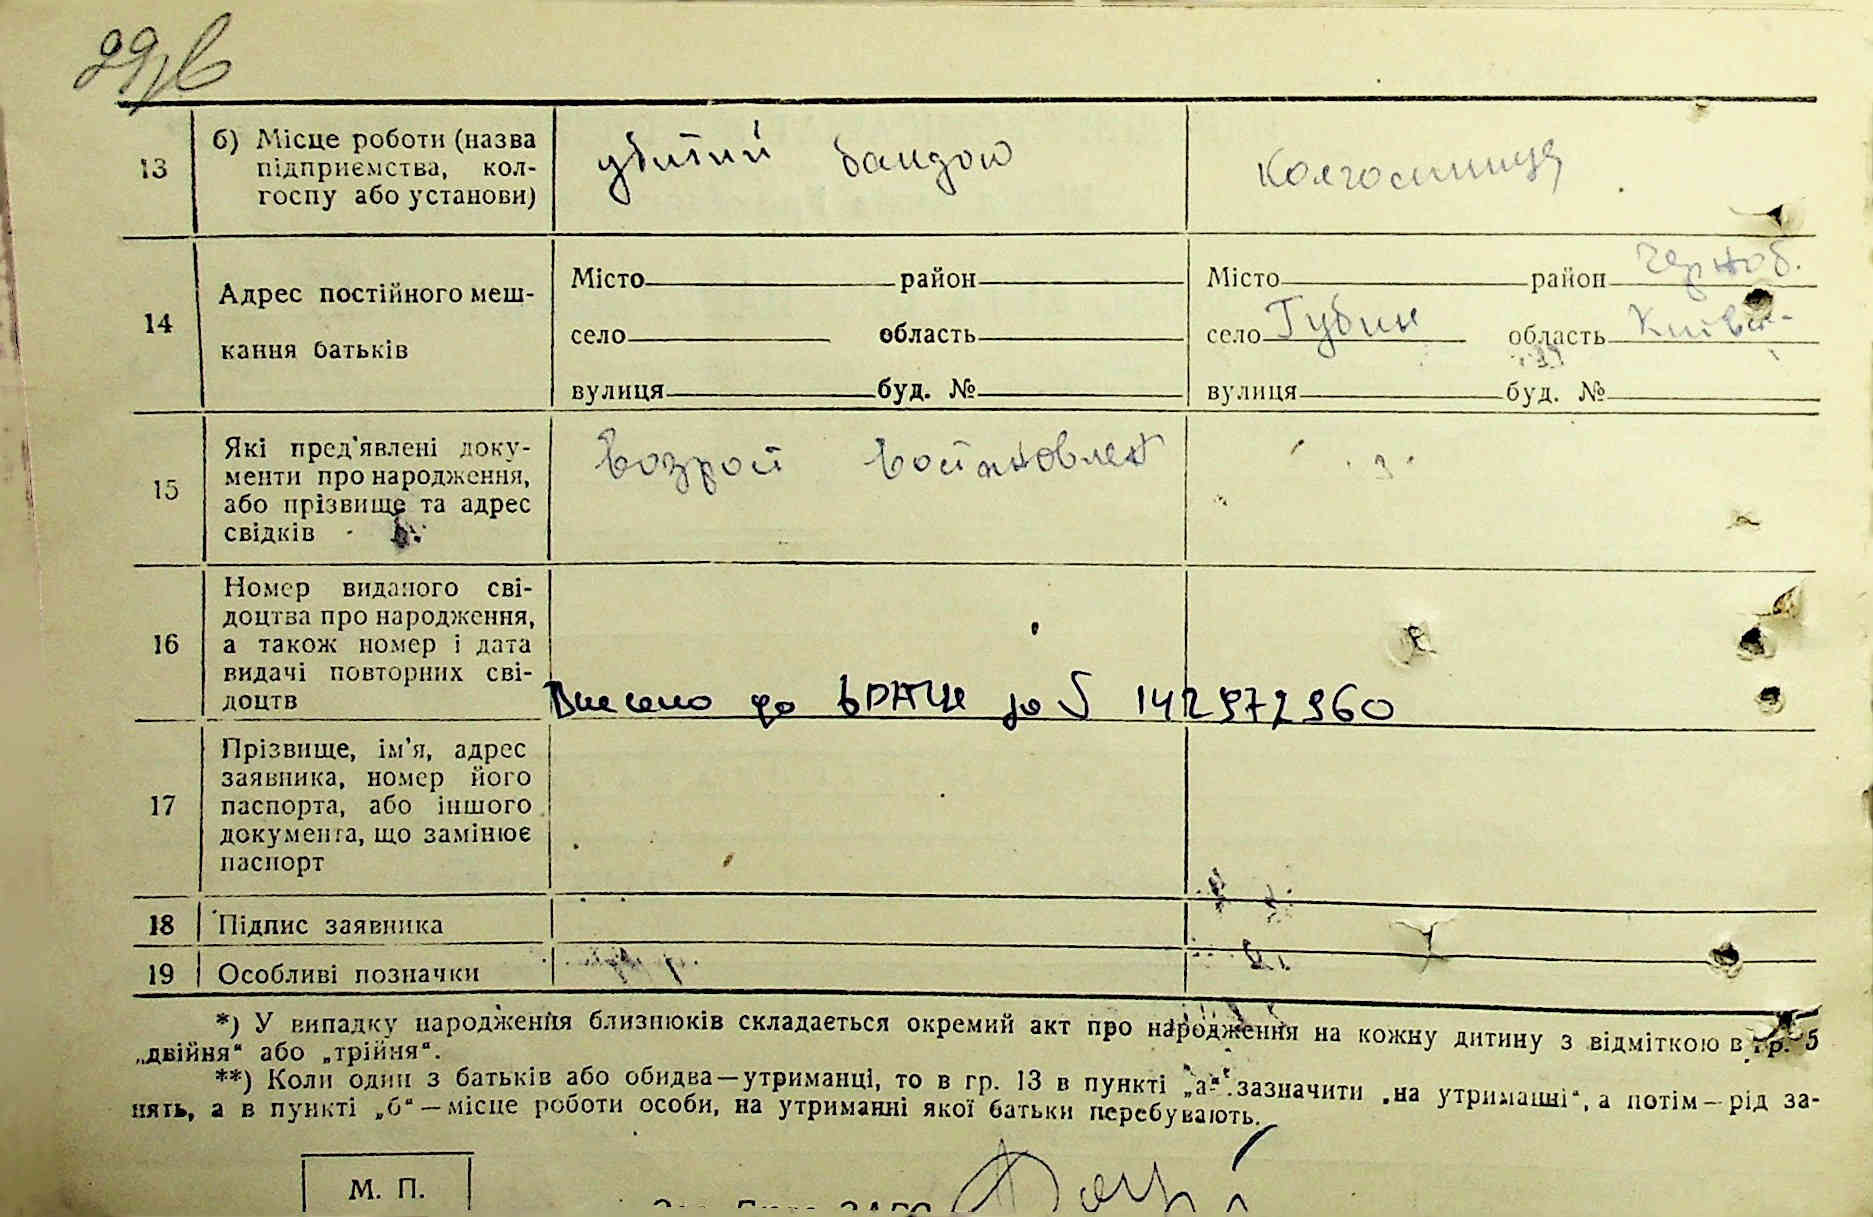 13
б) Місце роботи (назва
підприємства, кол-
госпу або установи)
убитий бандою
колгоспниця
14
Адрес постійного меш-
кання батьків
Місто район
село область
вулиця буд. №
Місто район Черноб.
село Губин область Київськ-
вулиця буд. №
15
Які пред'явлені доку-
менти про народження,
або прізвище та адрес
свідків
16
Номер виданого сві-
доцтва про народження,
а також номер і дата
видачі повторних сві-
доцтв
Внесено до ДРАЦС за № 142972960
17
Прізвище, ім'я, адрес
заявника, номер його
паспорта, або іншого
документа, що замінює
паспорт
18
Підпис заявника
19
Особливі позначки
*) У випадку народження близнюків складається окремий акт про народження на кожну дитину з відміткою в гр. 5
„двійня“ або „трійня“.
**) Коли один з батьків або обидва—утриманці, то в гр. 13 в пункті „а“ зазначити „на утриманні“, а потім—рід за-
нять, а в пункті „б“—місце роботи особи, на утриманні якої батьки перебувають.
М. П.